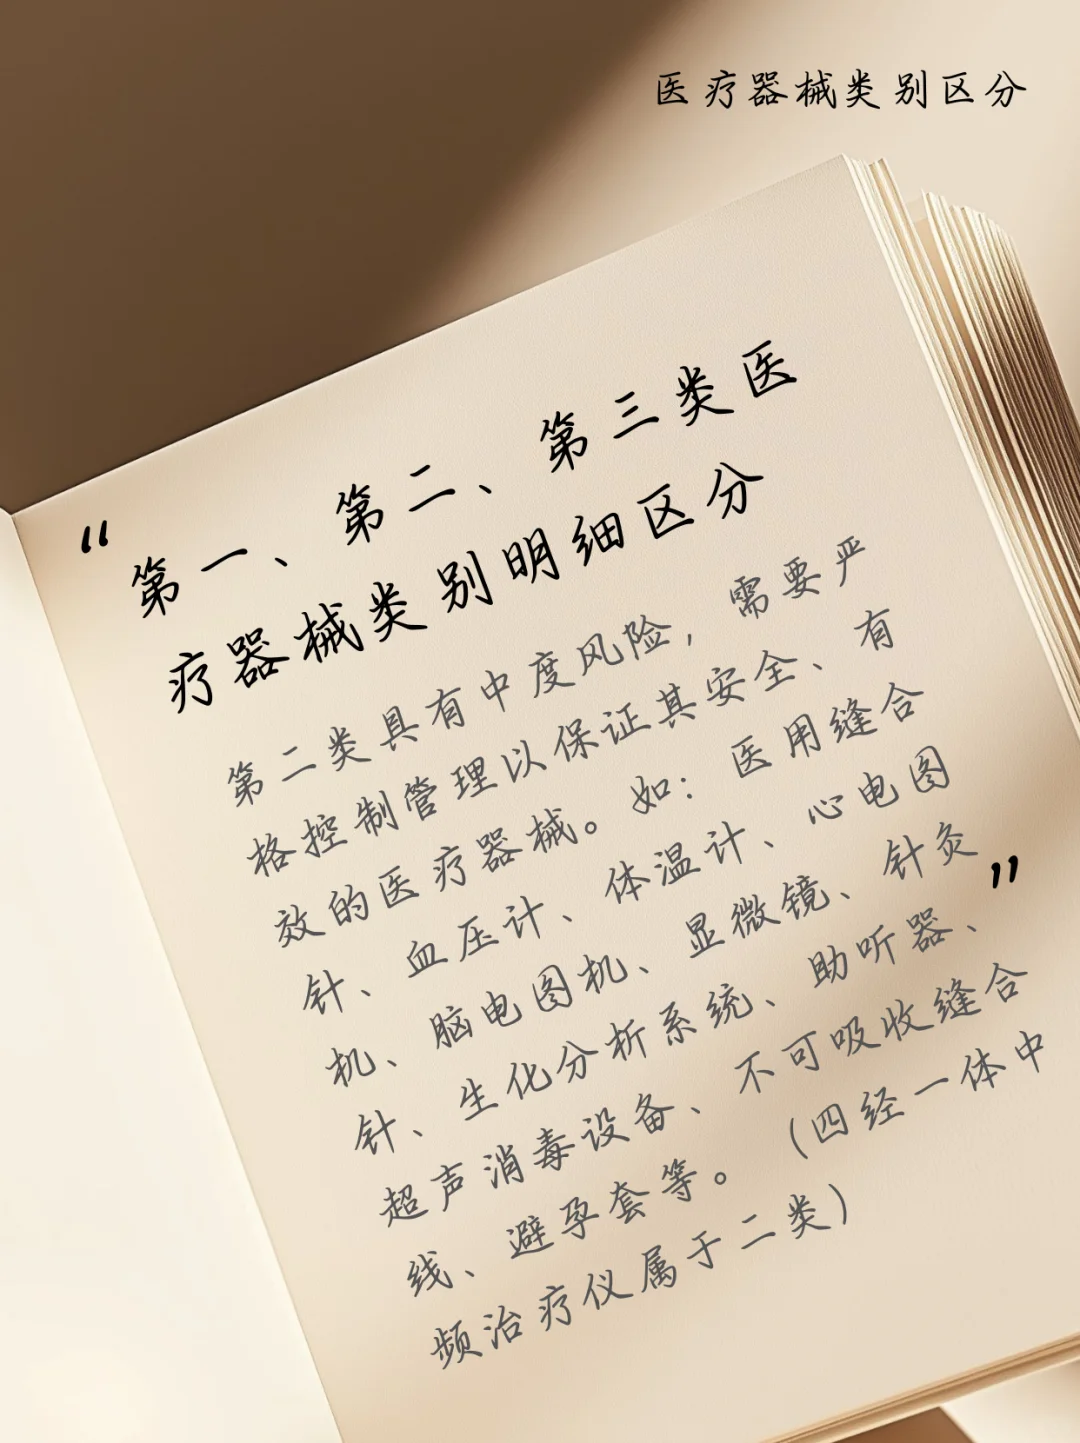 医疗器械类别区分
“
第一、第二、第三类医
疗器械类别明细区分
第二类具有中度风险，需要严
格控制管理以保证其安全、有
效的医疗器械。如：医用缝合
针、血压计、体温计、心电图
机、脑电图机、显微镜、针灸
针、生化分析系统、助听器、
超声消毒设备、不可吸收缝合
线、避孕套等。（四经一体中
频治疗仪属于二类）
”